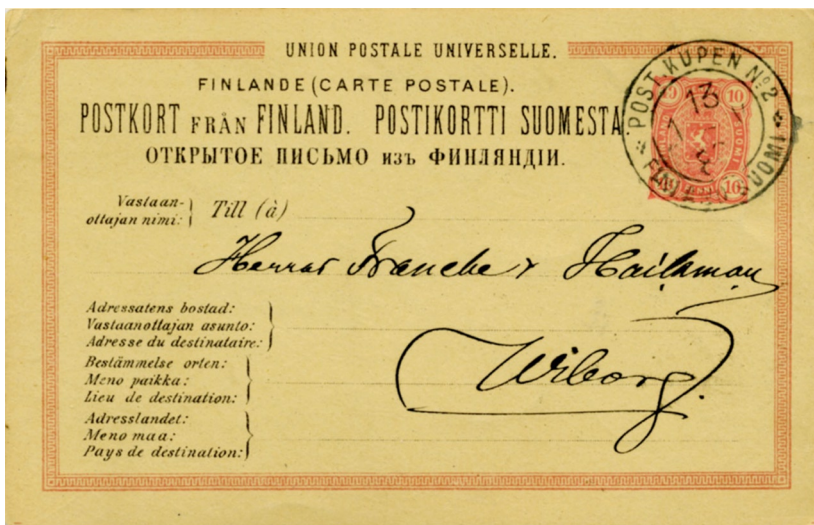 UNION POSTALE UNIVERSELLE.
FINLANDE (CARTE POSTALE).
POSTKORT FRÅN FINLAND. POSTIKORTTI SUOMESTA
ОТКРЫТОЕ ПИСЬМО изъ ФИНЛЯНДІИ.
POST. KUPEN No. 2
FINLAND SUOMI
13
10 10
SUOMI
10
Vastaan-
ottajan nimi:
Till (à)
Herrar Francke & Hackman
Adressatens bostad:
Vastaanottajan asunto:
Adresse du destinataire:
Wiborg.
Bestämmelse orten:
Meno paikka:
Lieu de destination:
Adresslandet:
Meno maa:
Pays de destination: